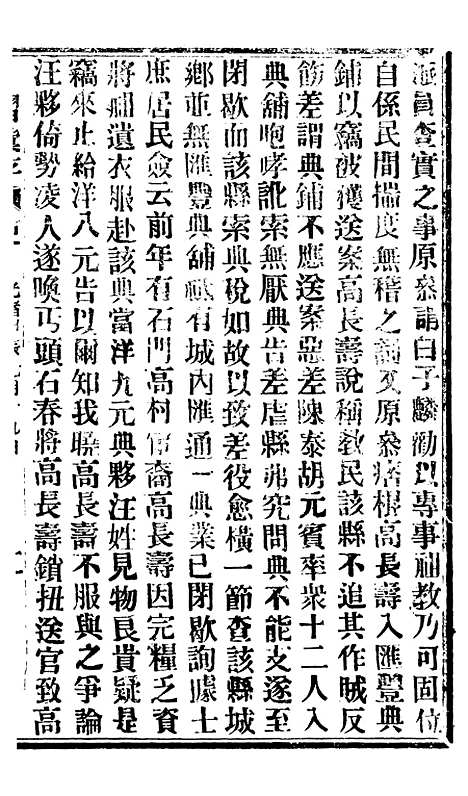 委員查實之事原參謂白子麟勸以專事袒教乃可固位
自係民間揣度無稽之詞又原參痞棍高長壽入匯豐典
鋪以竊被獲送案高長壽說稱教民該縣不追其作賊反
飭差謂典鋪不應送案惡差陳泰胡元賓率衆十二人入
典舖咆哮訛索無厭典告差虐縣弗究問典不能支遂至
閉歇而該縣索典稅如故以致差役愈橫一節查該縣城
鄉並無匯豐典舖祗有城內匯通一典業已閉歇詢據士
庶居民僉云前年有石門高村宦裔高長壽因完糧乏資
將細遺衣服赴該典當洋九元典夥汪姓見物良貴疑是
竊來止給洋八元告以爾知我曉高長壽不服與之爭論
汪夥倚勢凌人遂喚丐頭石春將高長壽鎖扭送官致高